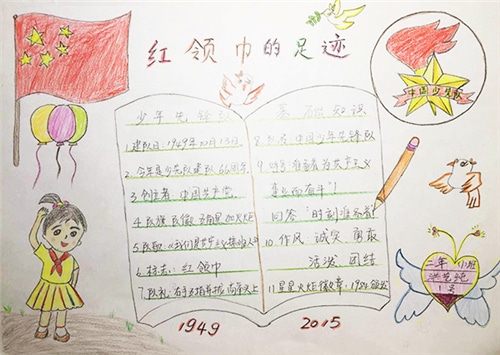 红领巾的足迹
中国少先队
少年先锋队
1.建队日:1949年10月13日
2.今年是少先队建队66周年
3.创立者:中国共产党
4.队旗、队徽:五角星加火炬
5.队歌:《我们是共产主义接班人》
6.标志:红领巾
7.队礼:右手五指并拢,高举头上
1949
基础知识
8.队名:中国少年先锋队
9.呼号:准备着为共产主义
事业而奋斗!
回答“时刻准备着”
10.作风 诚实 勇敢
活泼 团结
11.星星火炬徽章:1984
2015
二年 小班
1号